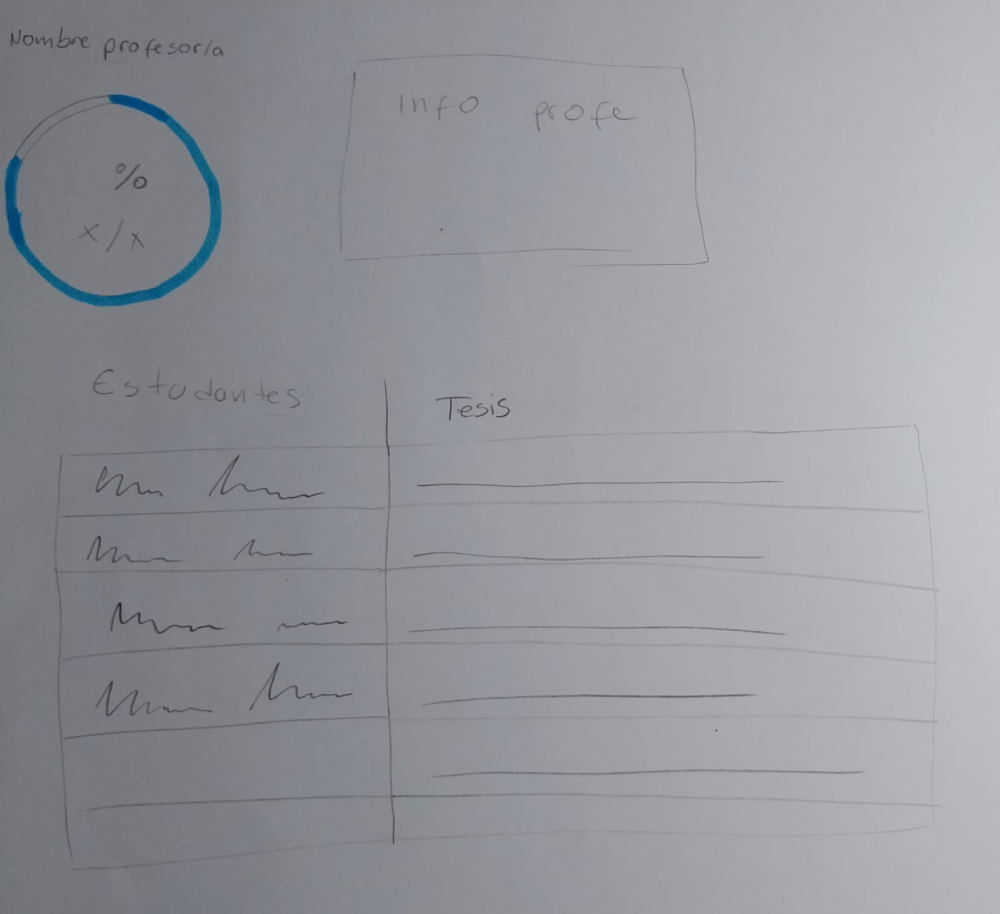 Nombre profesor/a
Info profe
%
x/x
Estudantes
Tesis